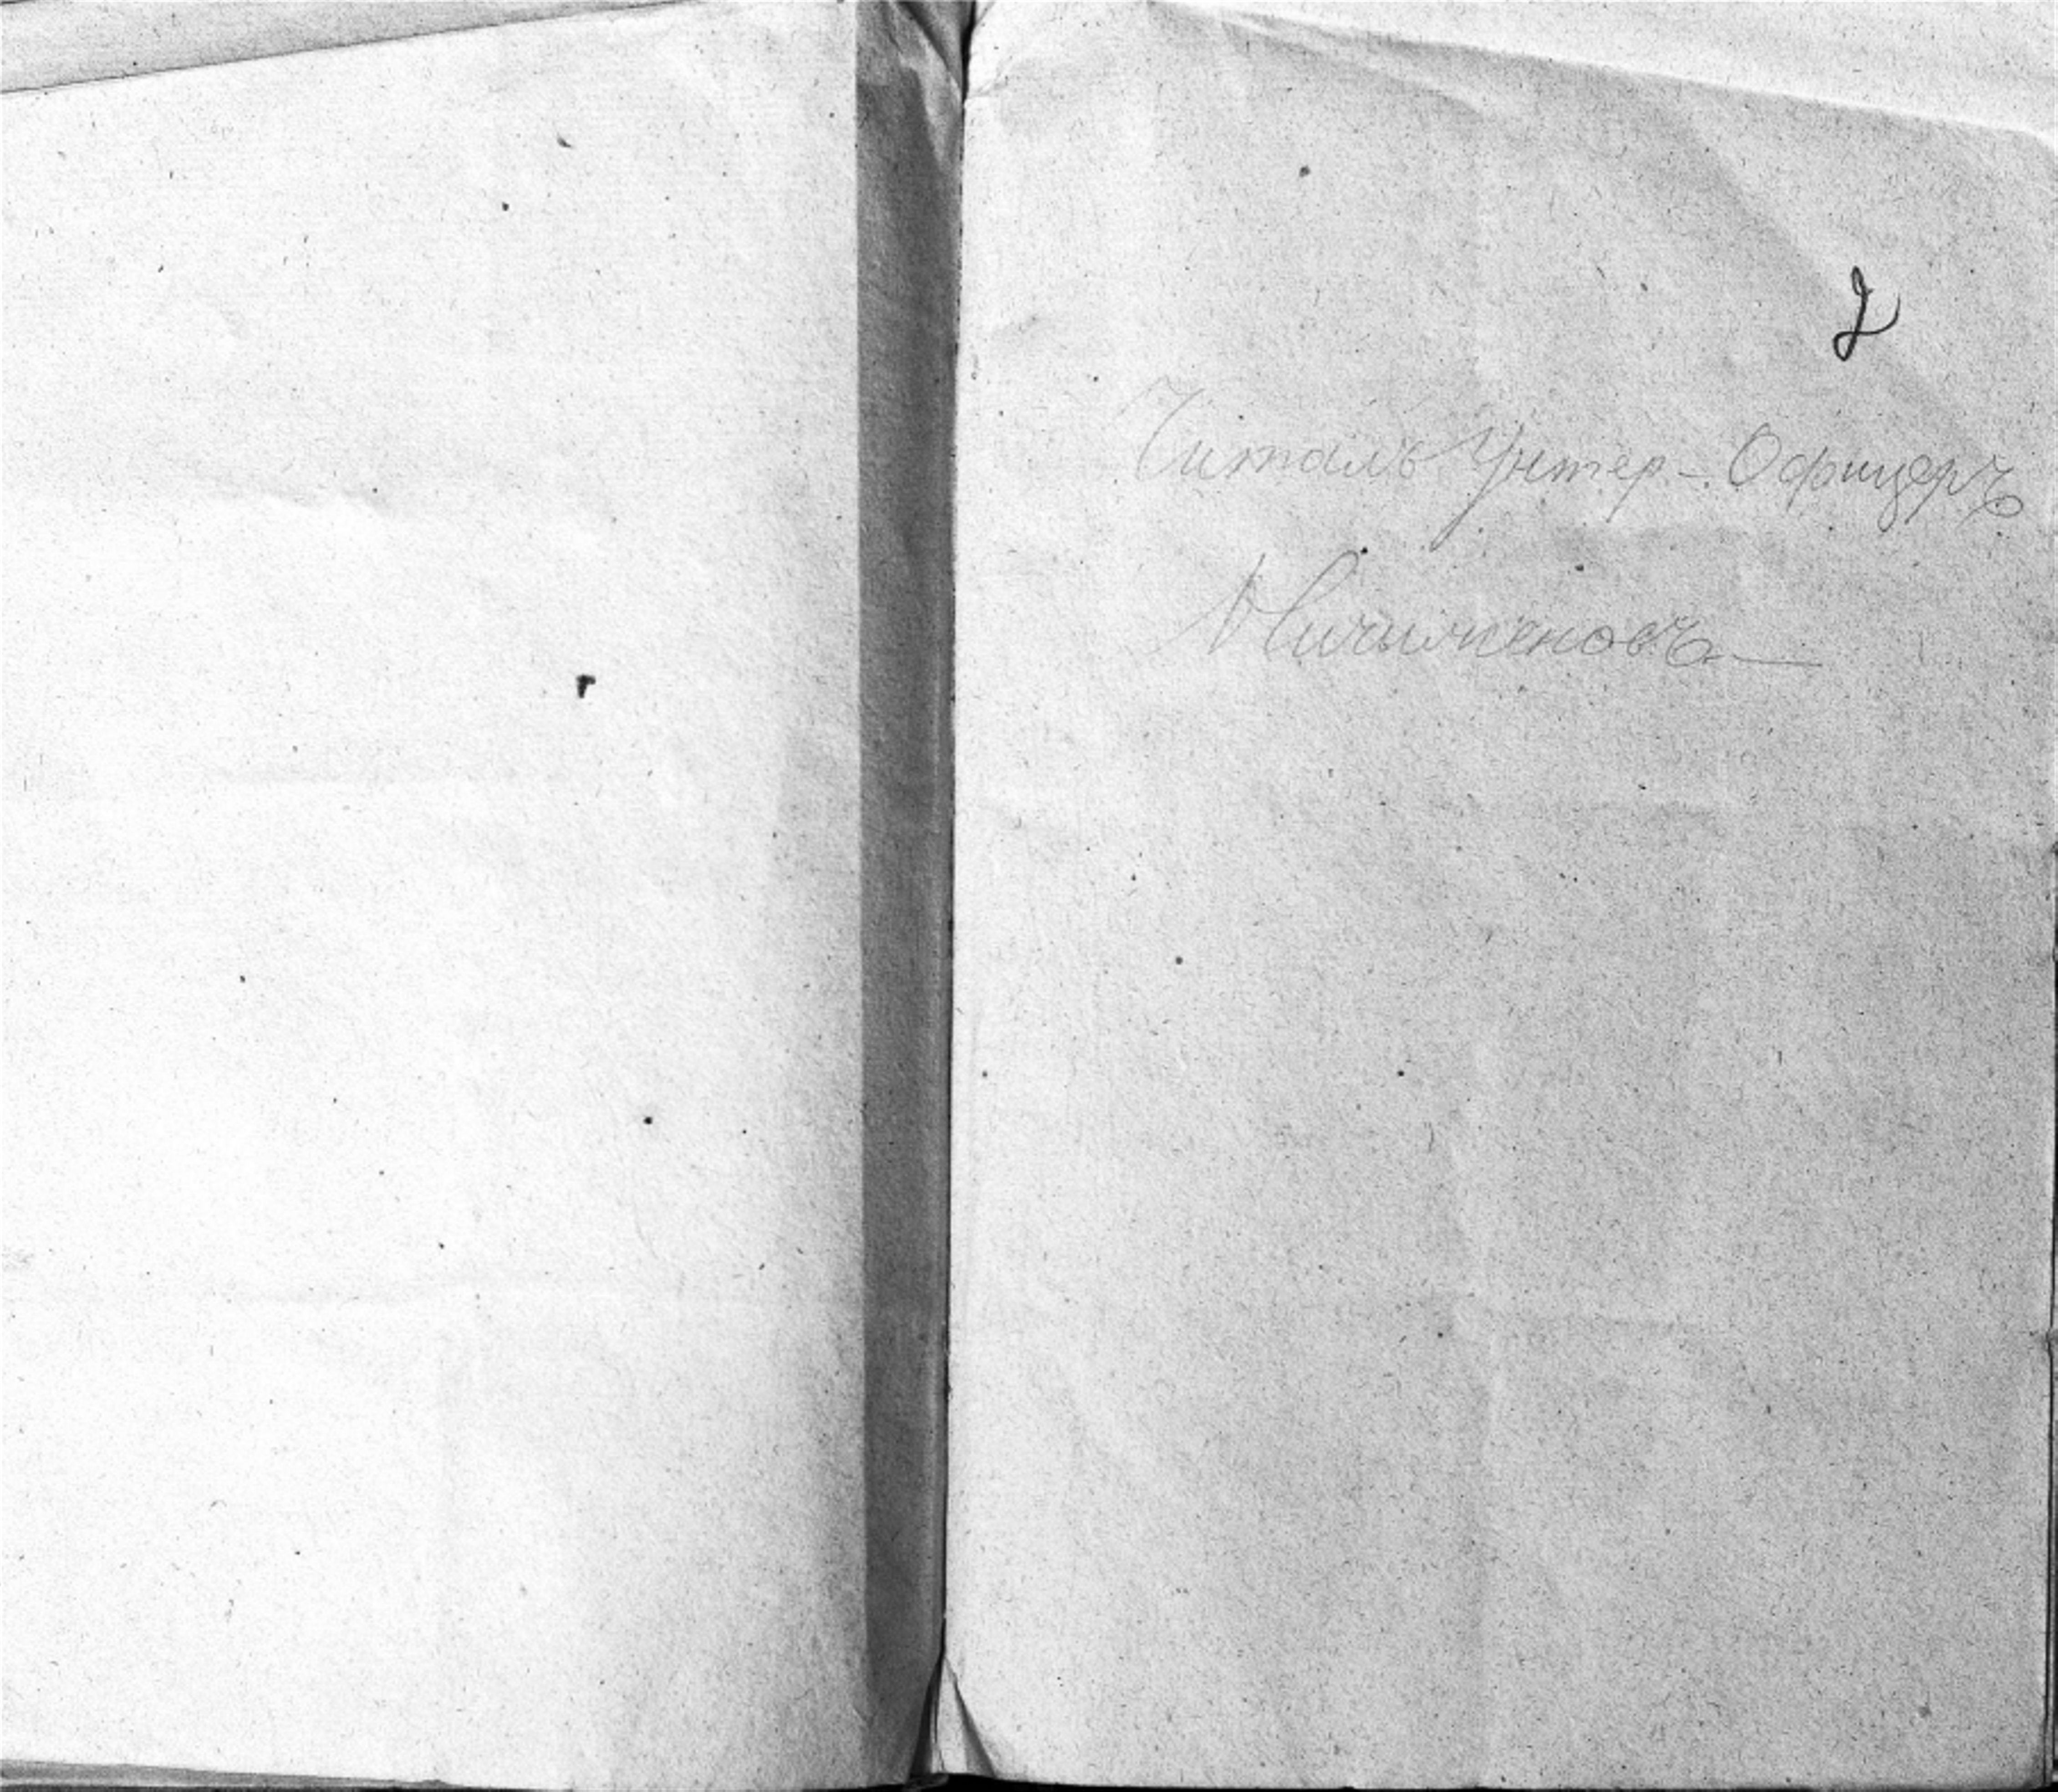 2
Читалъ Унтер-Офицеръ